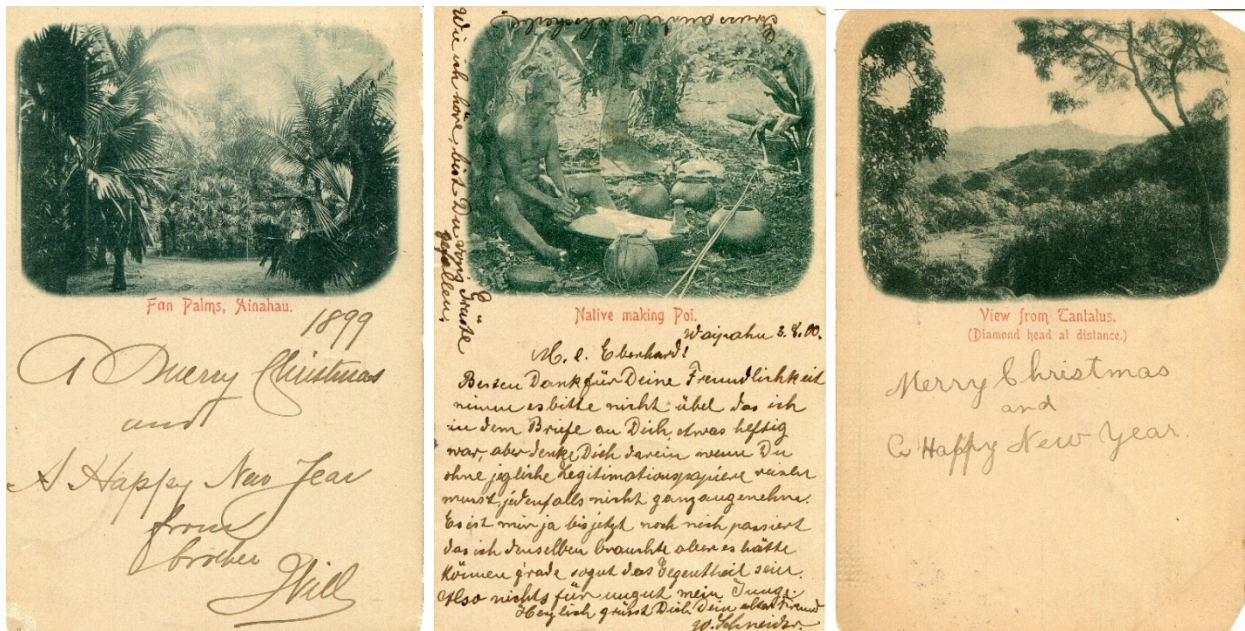 Fan Palms, Ainahau.
1899
A Merry Christmas
and
A Happy New Year
from
brother
Will
Wie ich höre, bist Du vorig Grüße
gefallen,
Native making Poi.
Waipahu 3.8.00.
M. l. Eberhard!
Besten Dank für Deine Freundlichkeit
nimm es bitte nicht übel das ich
in dem Briefe an Dich etwas heftig
war, aber denke Dich darein wenn Du
ohne jegliche Legitimationspapiere reisen
musst, jedenfalls nicht ganz angenehm.
Es ist mir ja bis jetzt noch nich passiert
das ich denselben brauchte aber es hätte
können grade sogut das Gegentheil sein.
Also nichts für ungut mein Junge
Herzlich grüsst Dich Dein alter Freund
W. Schneider.
View from Tantalus.
(Diamond head at distance.)
Merry Christmas
and
A Happy New Year.